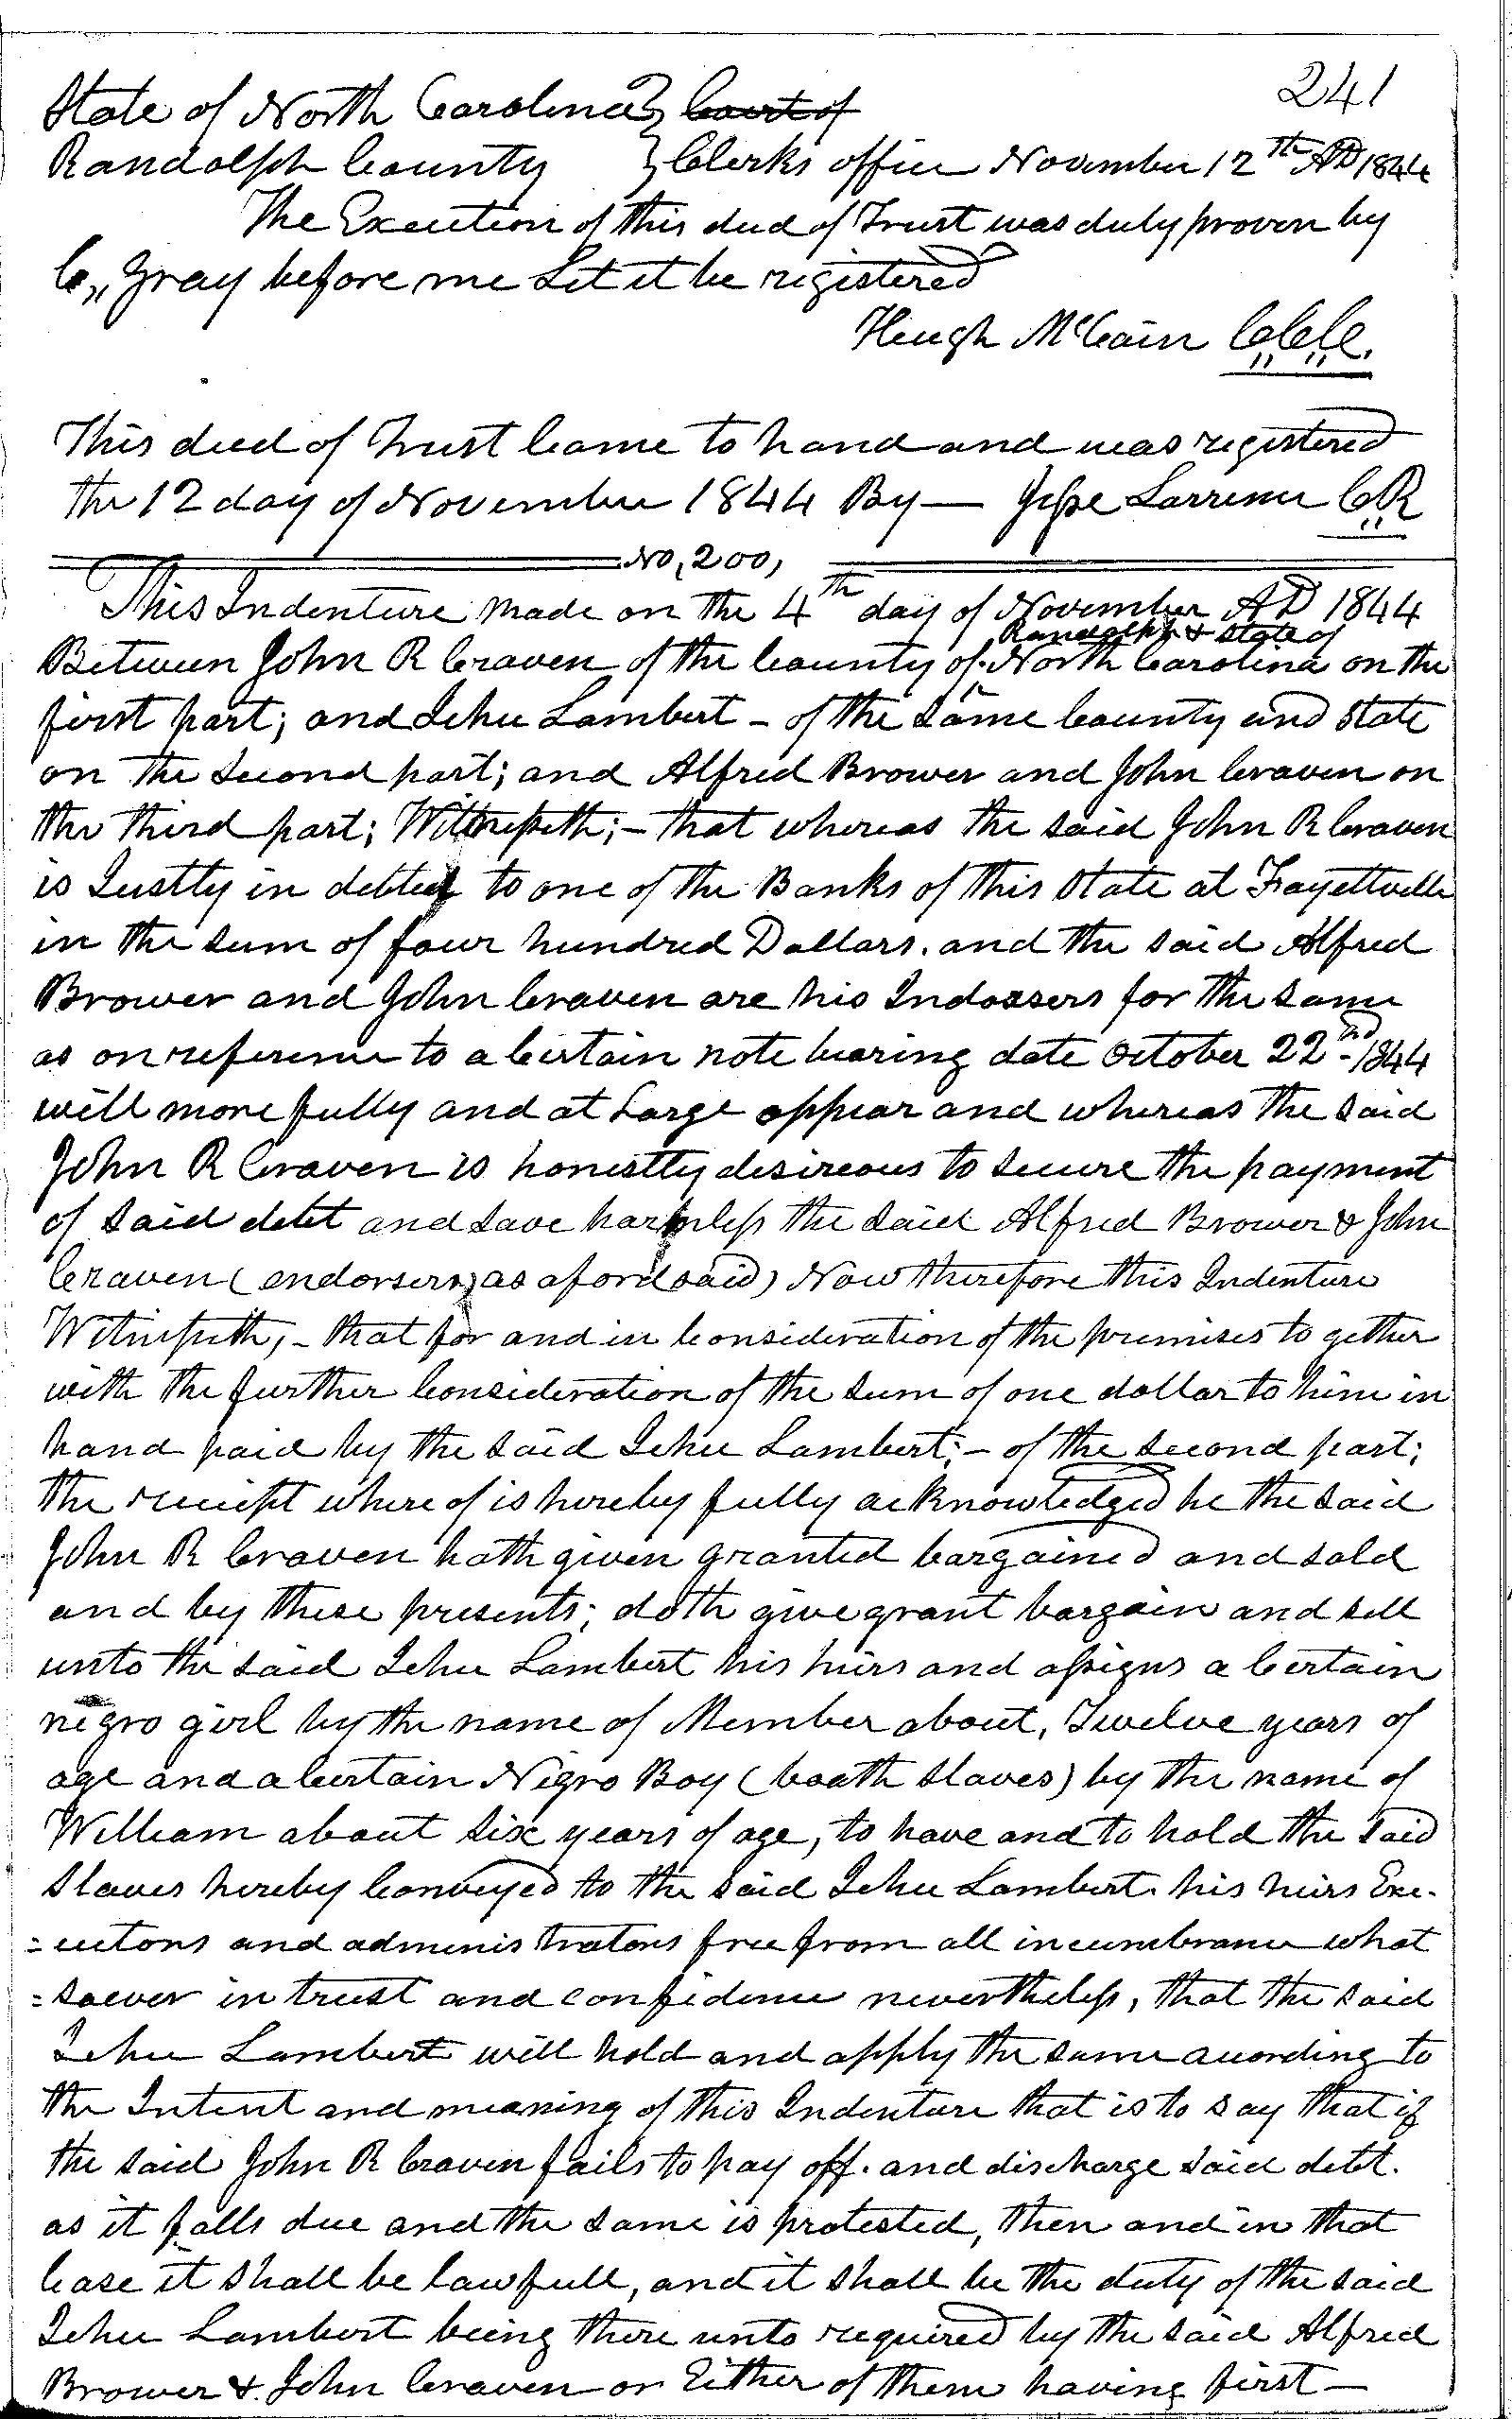 241
State of North Carolina } Court of
Randolph County } Clerks office November 12th AD 1844
The Execution of this deed of Trust was duly proven by
C,, Gray before me Let it be registered
Hugh McCain C,,C,,C.
This deed of Trust Came to hand and was registered
the 12 day of November 1844 By — Jesse Larrimer C,,R
No, 200,
This Indenture made on the 4th day of November AD 1844
Randolph & State of
Between John R Craven of the County of North Carolina on the
first part; and Jehu Lambert - of the Same County and State
on the Second part; and Alfred Brower and John Craven on
the third part; Wittnesseth; - that whereas the said John R Craven
is Justly in debted to one of the Banks of this State at Fayettville
in the Sum of four hundred Dollars. and the said Alfred
Brower and John Craven are his Indossers for the same
as on reference to a Certain note bearing date October 22nd 1844
will more fully and at Large appear and whereas the said
John R Craven is honestly desireous to secure the payment
of said debt and save harmless the said Alfred Brower & John
Craven (endorsers as afordsaid) Now therefore this Indenture
Witnesseth, - that for and in Consideration of the premises to gether
with the further Consideration of the Sum of one dollar to him in
hand paid by the said Jehu Lambert; - of the second part;
the reciept where of is hereby fully acknowledged he the said
John R Craven hath given granted bargained and sold
and by these presents; doth give grant bargain and sell
unto the said Jehu Lambert his heirs and assigns a Certain
negro girl by the name of Member about, Twelve years of
age and a Certain Negro Boy (boath slaves) by the name of
William about six years of age, to have and to hold the said
slaves hereby Conveyed to the said Jehu Lambert. his heirs Exe-
=cutors and adminis trators free from all incumbrance what
=soever in trust and confidence nevertheless, that the said
Jehu Lambert will hold and apply the same acording to
the Intent and meaning of this Indenture that is to say that if
the said John R Craven fails to pay off. and discharge said debt.
as it falls due and the same is protested, then and in that
Case it shall be lawfull, and it shall be the duty of the said
Jehu Lambert being there unto required by the said Alfred
Brower & John Craven or Either of them having first —